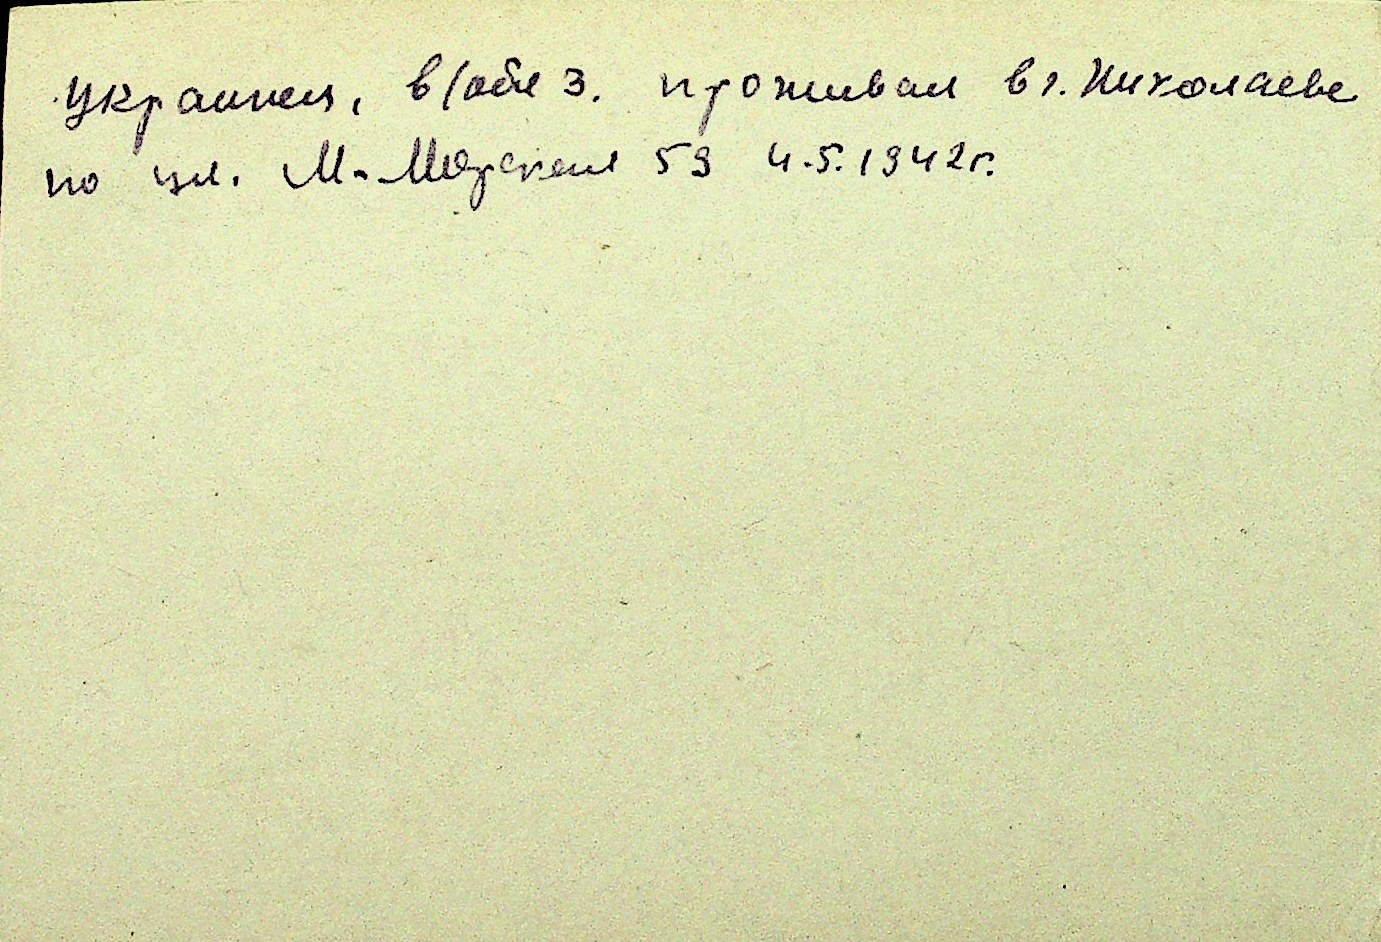 украинец, в/обяз. проживал в г. Николаеве
по ул. М-Морская 59 4.5.1942 г.